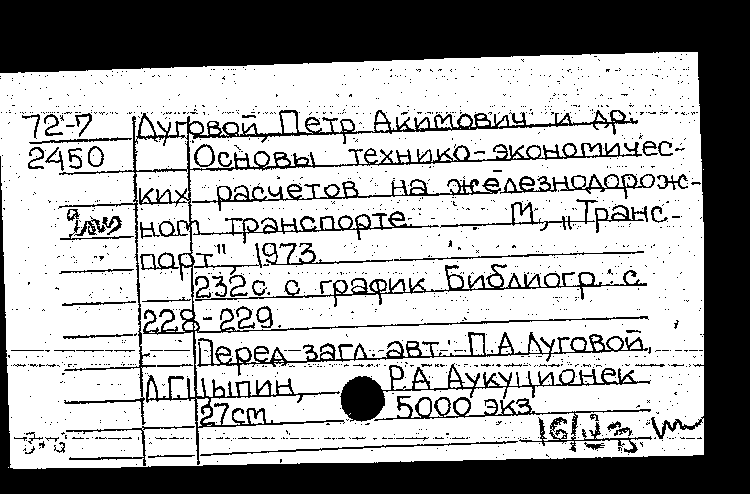 72-7 Луговой, Петр Акимович и др.
2450 Основы технико-экономичес-
ких расчетов на железнодорож-
ном транспорте. М., „Транс-
порт", 1973.
232с. с график. Библиогр.: с.
228-229.
Перед загл. авт.: П.А.Луговой,
Л.Г.Цыпин, Р.А. Аукуционек
27cm. 5000 экз.